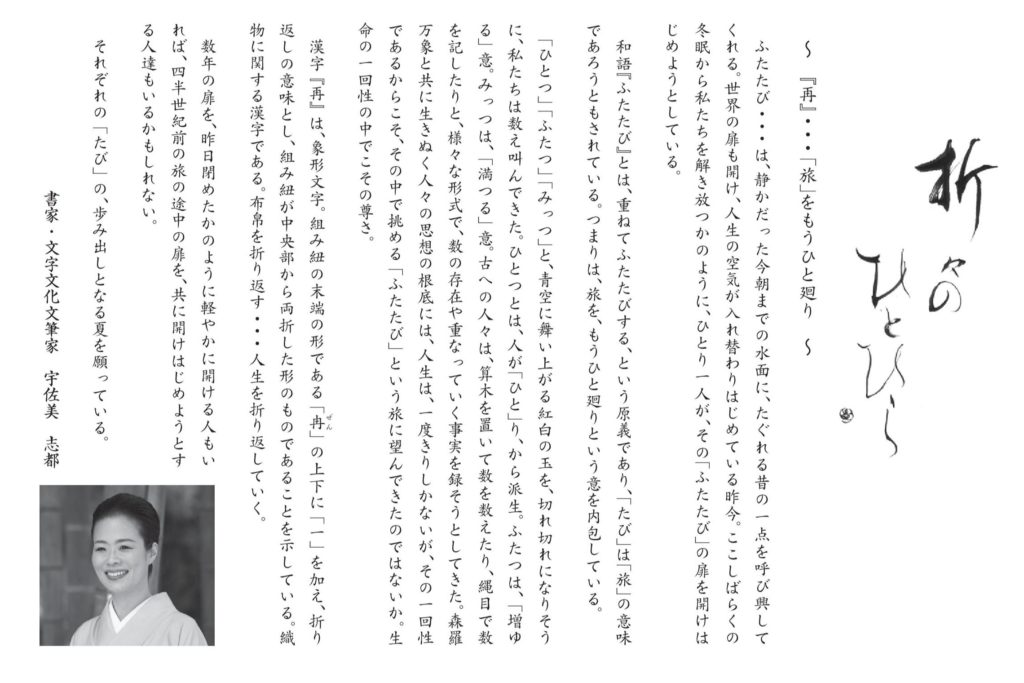 折々の
ひとひら
～　『再』・・・「旅」をもうひと廻り　～
ふたたび・・・は、静かだった今朝までの水面に、たぐれる昔の一点を呼び興して
くれる。世界の扉も開け、人生の空気が入れ替わりはじめている昨今。ここしばらくの
冬眠から私たちを解き放つかのように、ひとり一人が、その「ふたたび」の扉を開けは
じめようとしている。
和語『ふたたび』とは、重ねてふたたびする、という原義であり、「たび」は「旅」の意味
であろうともされている。つまりは、旅を、もうひと廻りという意を内包している。
「ひとつ」「ふたつ」「みっつ」と、青空に舞い上がる紅白の玉を、切れ切れになりそう
に、私たちは数え叫んできた。ひとつとは、人が「ひと」り、から派生。ふたつは、「増ゆ
る」意。みっつは、「満つる」意。古への人々は、算木を置いて数を数えたり、縄目で数
を記したりと、様々な形式で、数の存在や重なっていく事実を録そうとしてきた。森羅
万象と共に生きぬく人々の思想の根底には、人生は、一度きりしかないが、その一回性
であるからこそ、その中で挑める「ふたたび」という旅に望んできたのではないか。生
命の一回性の中でこその尊さ。
漢字『再』は、象形文字。組み紐の末端の形である「冉」の上下に「一」を加え、折り
ぜん
返しの意味とし、組み紐が中央部から両折した形のものであることを示している。織
物に関する漢字である。布帛を折り返す・・・人生を折り返していく。
数年の扉を、昨日閉めたかのように軽やかに開ける人もい
れば、四半世紀前の旅の途中の扉を、共に開けはじめようとす
る人達もいるかもしれない。
それぞれの「たび」の、歩み出しとなる夏を願っている。
書家・文字文化文筆家　宇佐美　志都